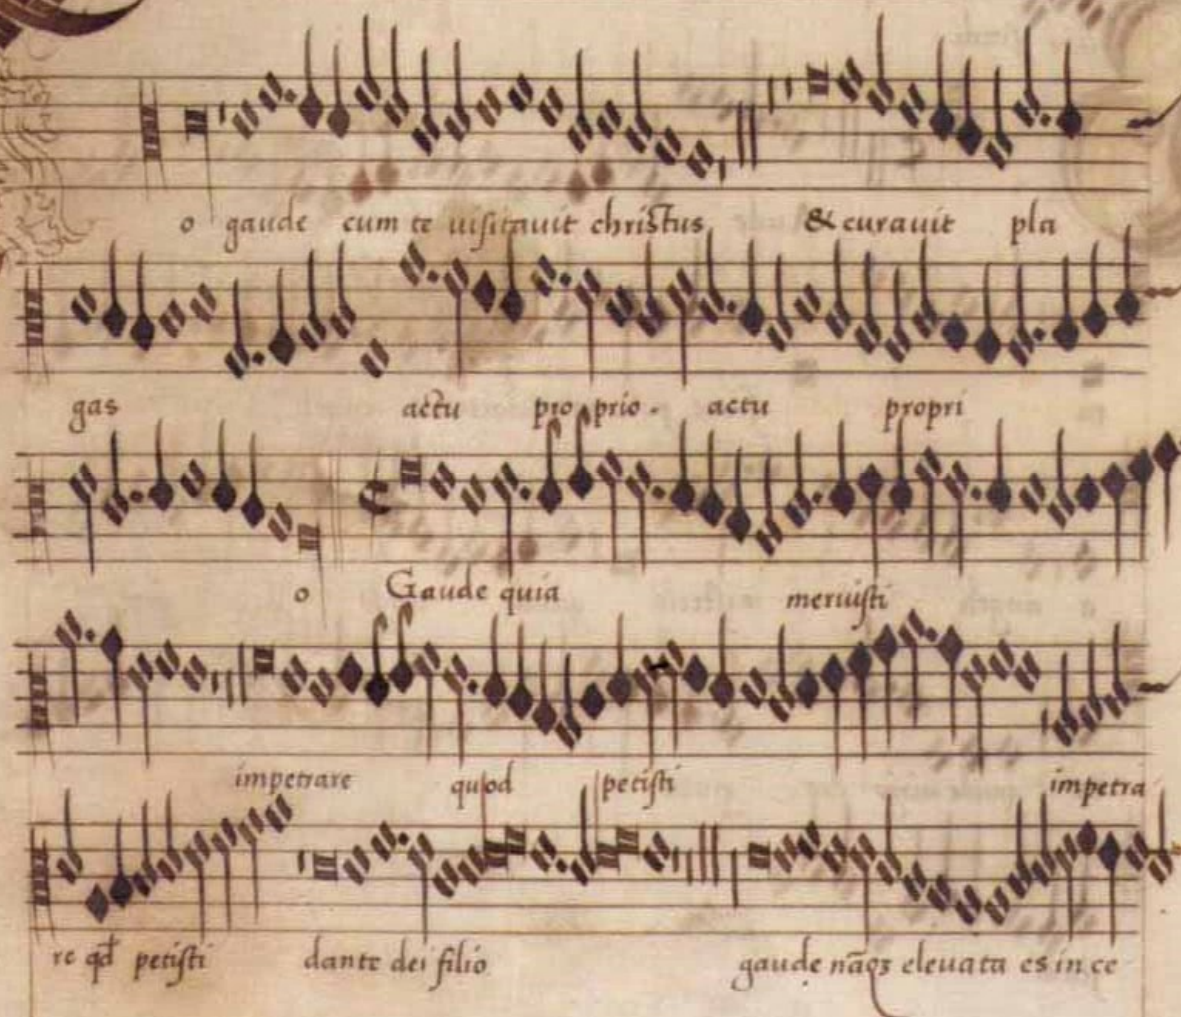 o gaude cum te uisitauit christus & curauit pla
gas actu proprio actu propri
o Gaude quia meruisti
impetrare quod petisti impetra
re qd petisti dante dei filio gaude nãqʒ eleuata es in ce